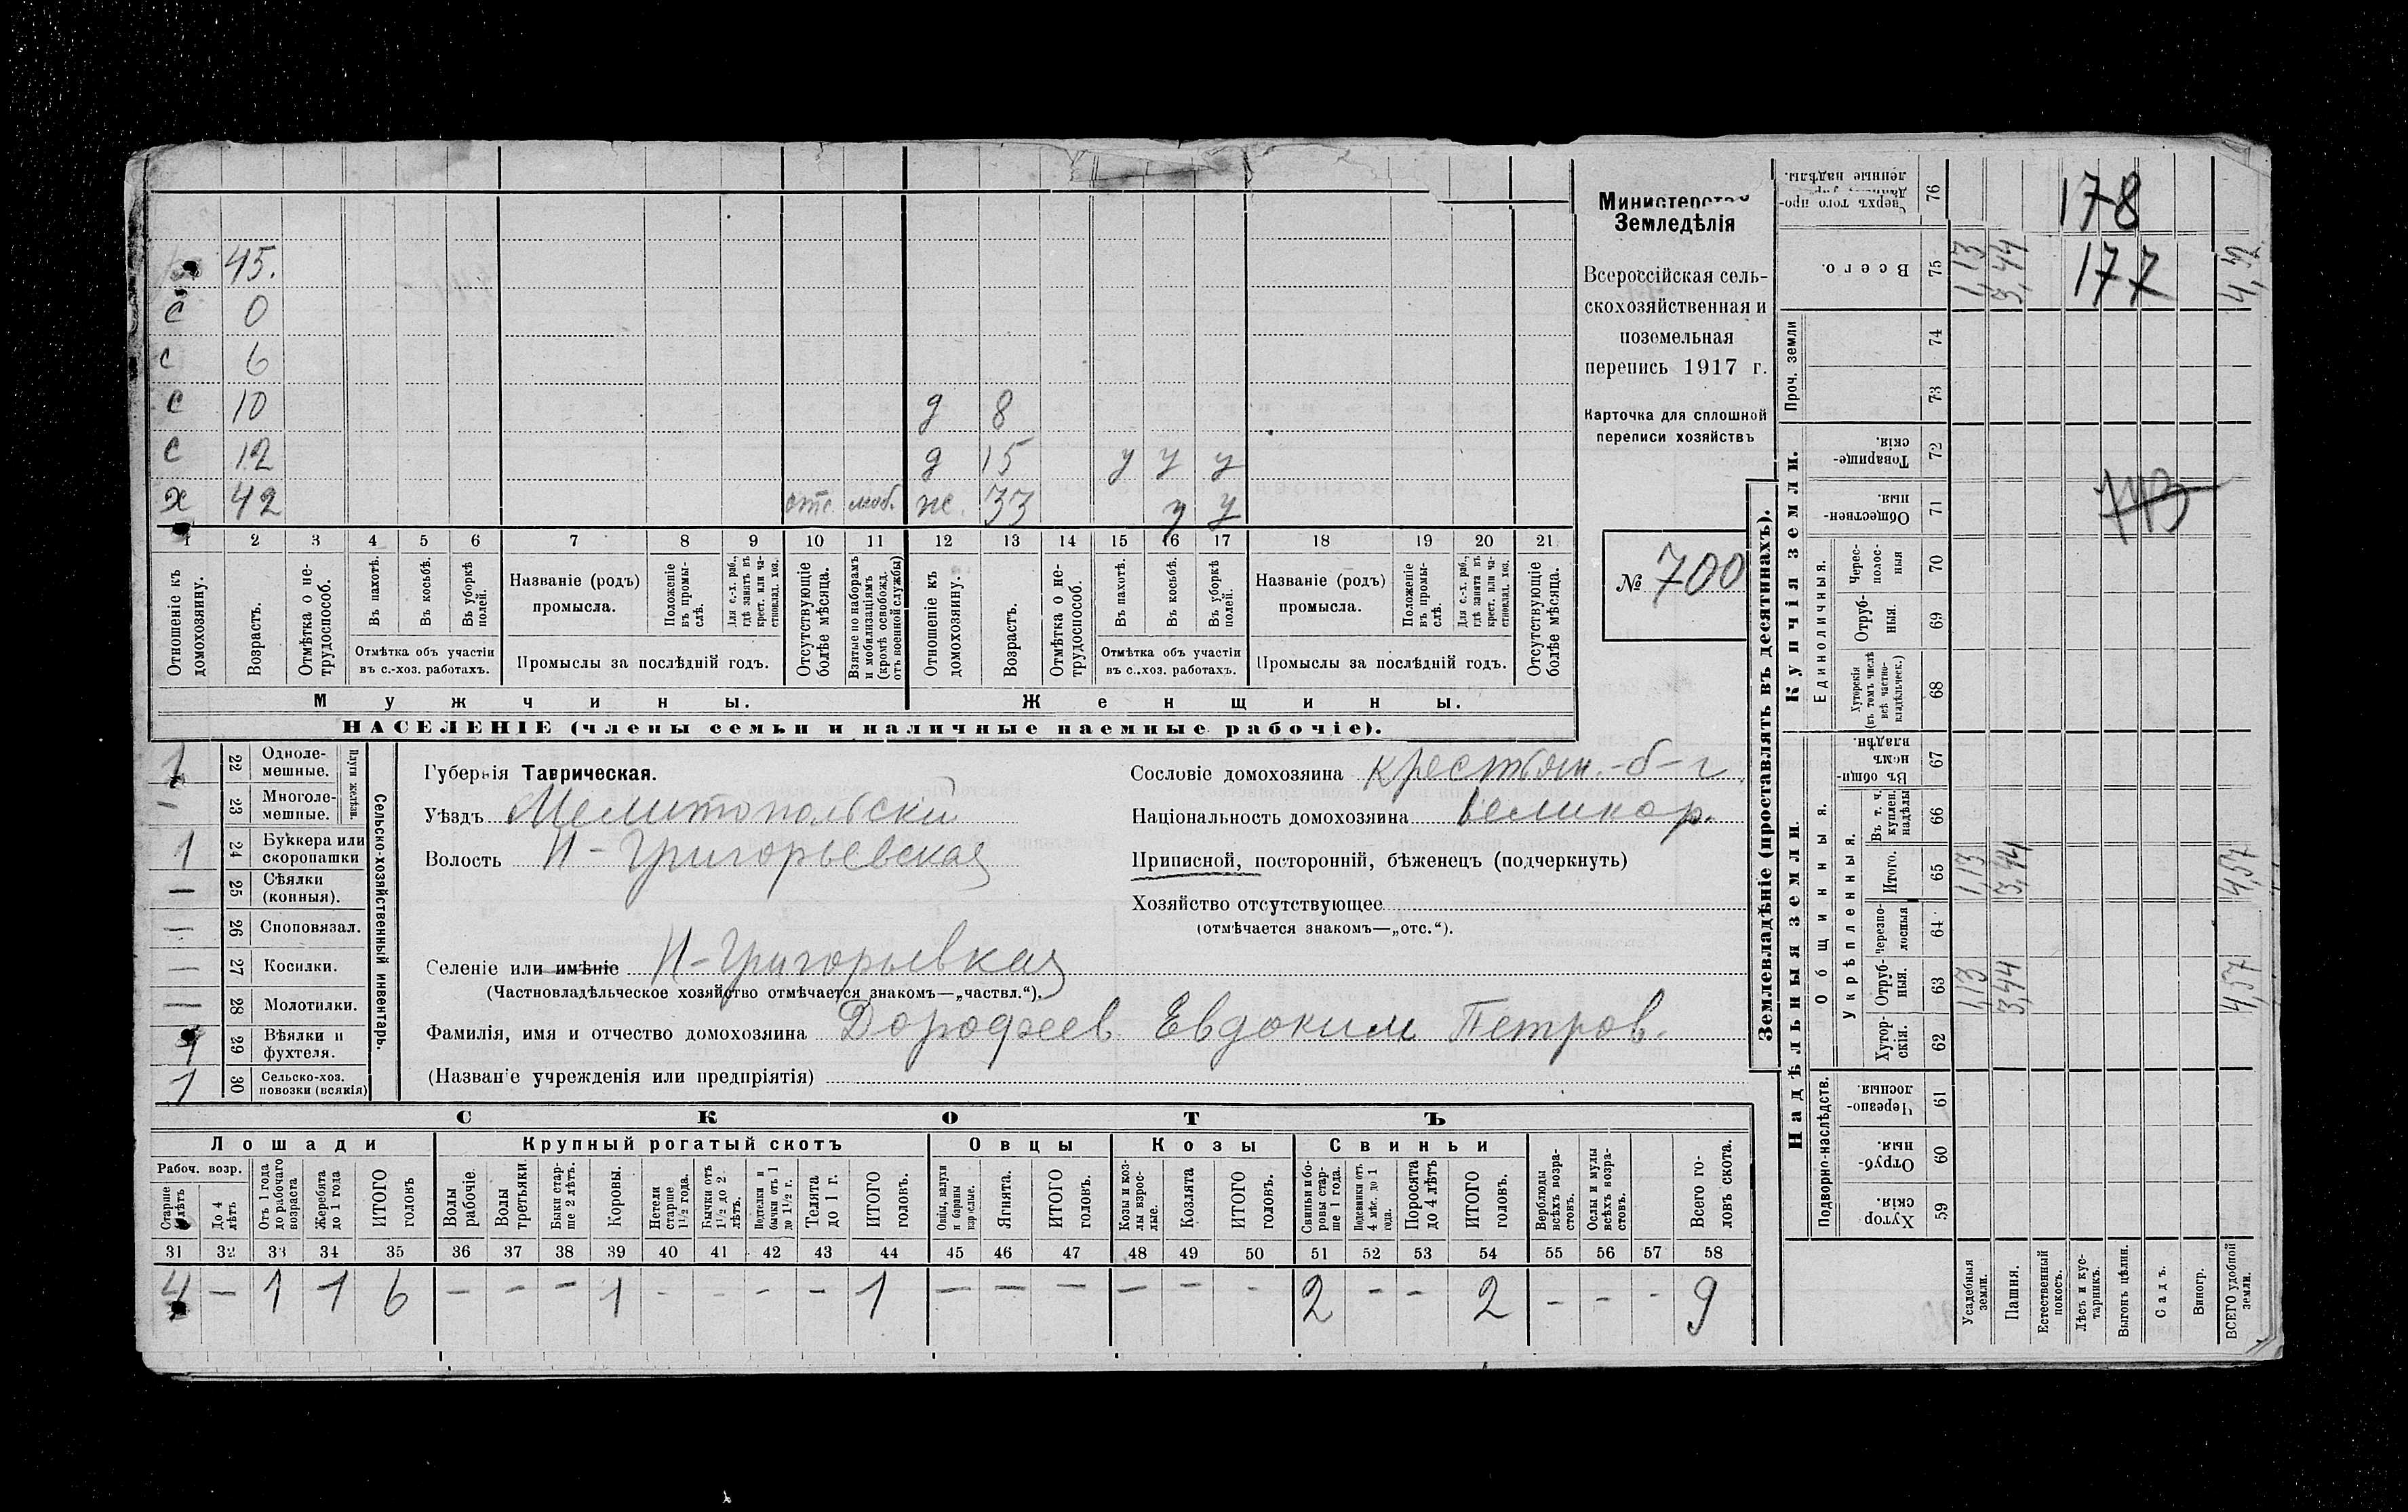 45.
с 0
с 6
с 10 д 8
с 12 д 15 у у у
х 42 отс. моб. ж. 33 у у
1 2 3 4 5 6 7 8 9 10 11 12 13 14 15 16 17 18 19 20 21
Отношеніе къ домохозяину.
Возрастъ.
Отмѣтка о не-трудоспособ.
Въ пахотѣ.
Въ косьбѣ.
Въ уборкѣ полей.
Отмѣтка объ участіи
въ с.-хоз. работахъ.
Названіе (родъ)
промысла.
Положеніе въ промы-слѣ.
Для с.-х. раб., гдѣ занятъ въ крест. или ча-стновлад. хоз.
Промыслы за послѣдній годъ.
Отсутствующіе болѣе мѣсяца.
Взятые по наборамъ и мобилизаціямъ (кромѣ освобожд. отъ военной службы)
Отношеніе къ домохозяину.
Возрастъ.
Отмѣтка о не-трудоспособ.
Въ пахотѣ.
Въ косьбѣ.
Въ уборкѣ полей.
Отмѣтка объ участіи
въ с..хоз. работахъ.
Названіе (родъ)
промысла.
Положеніе въ промы-слѣ.
Для с.-х. раб., гдѣ занята въ крест. или ча-стновлад. хоз.
Промыслы за послѣдній годъ.
Отсутствующіе болѣе мѣсяца.
Мужчины. Женщины.
НАСЕЛЕНІЕ (члены семьи и наличные наемные рабочіе).
Министерство
Земледѣлія
Всероссійская сель-
скохозяйственная и
поземельная
перепись 1917 г.
Карточка для сплошной
переписи хозяйствъ
№ 700
1 22 Одноле-мешные.
Плуги желѣзн.
— 23 Многоле-мешные.
1 24 Буккера или скоропашки
— 25 Сѣялки (конныя).
— 26 Споповязал.
— 27 Косилки.
— 28 Молотилки.
1 29 Вѣялки и фухтеля.
1 30 Сельско-хоз. повозки (всякія)
Сельско-хозяйственный инвентарь.
Губернія Таврическая.
Уѣздъ Мелитопольскій
Волость Н-Григорьевская
Селеніе или имѣніе Н-Григорьевкая
(Частновладѣльческое хозяйство отмѣчается знакомъ—„частвл.“).
Фамилія, имя и отчество домохозяина Дорофеев Евдоким Петров.
(Названіе учрежденія или предпріятія)
Сословіе домохозяина крестьян.-б-г
Національность домохозяина великор.
Приписной, посторонній, бѣженецъ (подчеркнуть)
Хозяйство отсутствующее
(отмѣчается знакомъ—„отс.“).
СКОТЪ
Лошади Крупный рогатый скотъ Овцы Козы Свиньи
Рабоч. возр.
Старше лѣтъ
До 4 лѣтъ
Отъ 1 года до рабочаго возраста
Жеребята до 1 года
ИТОГО головъ
Волы рабочіе.
Волы третьяки.
Быки стар-ше 2 лѣтъ.
Коровы.
Нетели старше 1½ года.
Бычки отъ 1½ до 2 лѣтъ.
Подтелки и бычки отъ 1 до 1½ г.
Телята до 1 г.
ИТОГО головъ.
Овцы, валухи и бараны взрослые.
Ягнята.
ИТОГО головъ.
Козы и коз-лы взрос-лые.
Козлята
ИТОГО головъ.
Свиньи и бо-ровы стар-ше 1 года.
Подсвинки отъ 4 мѣс. до 1 года.
Поросята до 4 лѣтъ
ИТОГО головъ.
Верблюды всѣхъ возра-стовъ.
Ослы и мулы всѣхъ возра-стовъ.
Всего го-ловъ скота.
31 32 33 34 35 36 37 38 39 40 41 42 43 44 45 46 47 48 49 50 51 52 53 54 55 56 57 58
4 — 1 1 6 — — — 1 - - - — 1 — — — — — - 2 — — 2 — — - 9
Землевладѣніе (проставлять въ десятинахъ).
Купчія земли.
Надѣльныя земли
Сверхъ того про-данные укр-ленные надѣлы. 76 178
Всего. 75 1,13 3,44 177 4,52
Проч. земли 74
73
Товарище-скія. 72
Обществен-ныя. 71 743
Единоличныя.
Черес-полос-ныя 70
Отруб-ныя. 69
Хуторскія (въ томъ числѣ всѣ частно-владѣльческ.) 68
Общинныя.
Въ общин-номъ владѣн. 67
Укрѣпленныя.
Въ т. ч. куплен. надѣлы 66
Итого. 65 1,13 3,44 4,57
Черезпо-лосныя 64
Отруб-ныя. 63 1,13 3,44 4,57
Хутор-скія. 62
Подворно-наслѣдств.
Черезпо-лосныя 61
Отруб-ныя. 60
Хутор-скія. 59
Усадебныя земли.
Пашня.
Естественный покосъ.
Лѣсъ и кус-тарникъ.
Выгонъ цѣлин.
Садъ.
Виногр.
ВСЕГО удобной земли.